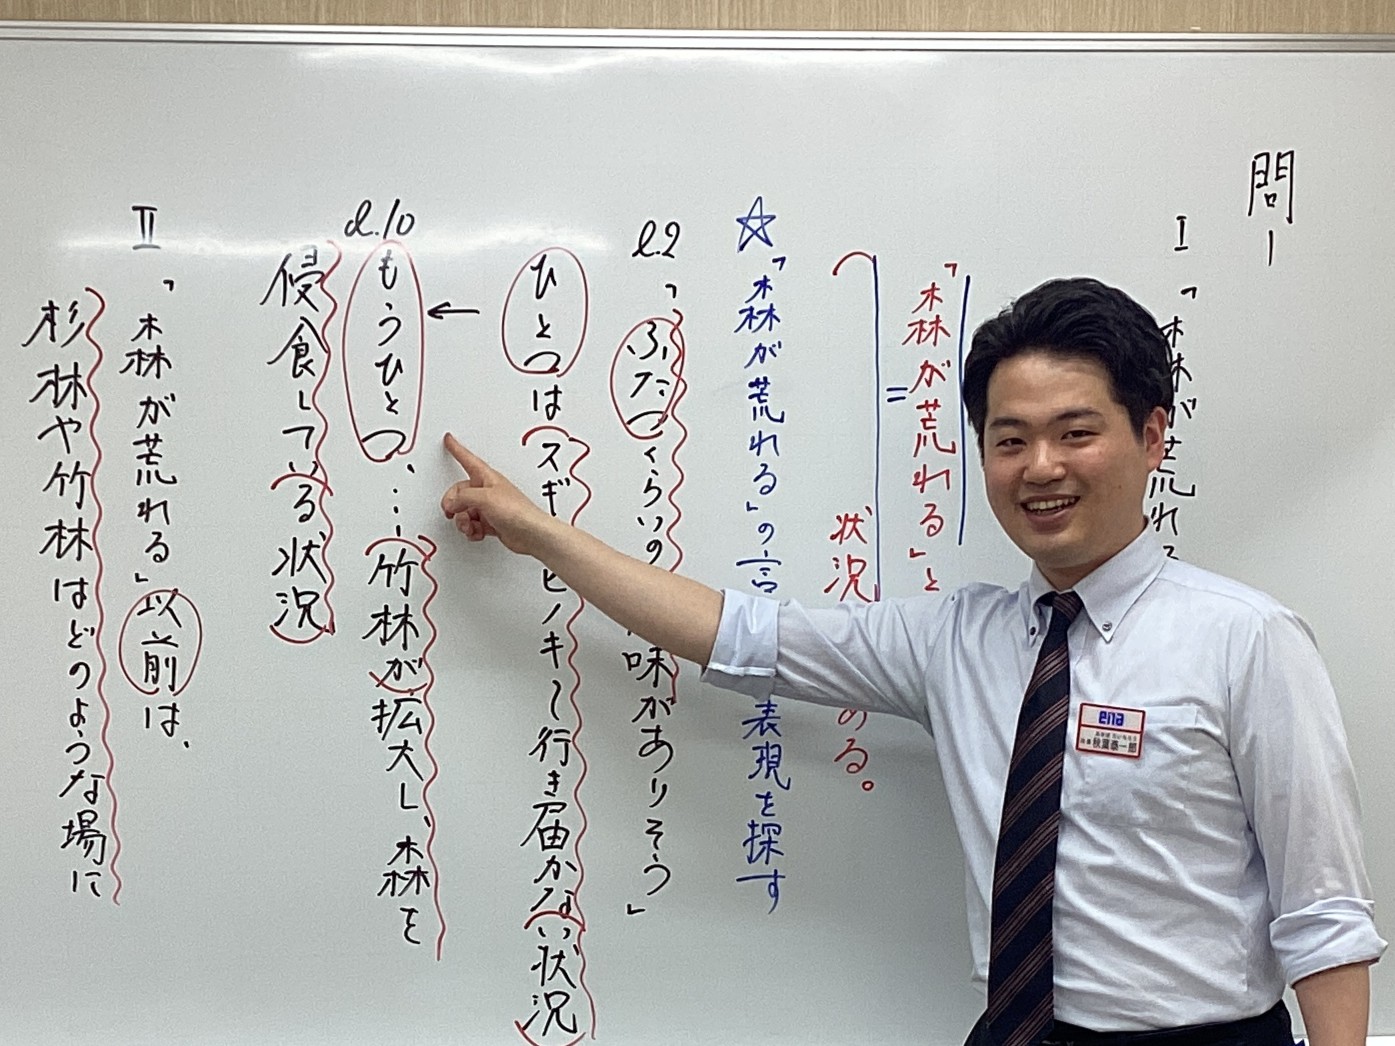 問一
Ⅰ 「森が荒れる
「森が荒れる」と
=
状況 める。
☆「森が荒れる」の言 表現を探す
l.2 「ふたつくらいの 味がありそう」
ひとつはスギ ヒノキ〜行き届かない状況
←
l.10 もうひとつ、…竹林が拡大し、森を
侵食している状況
Ⅱ 「森が荒れる」以前は、
杉林や竹林はどのような場に
ena
秋葉泰一郎